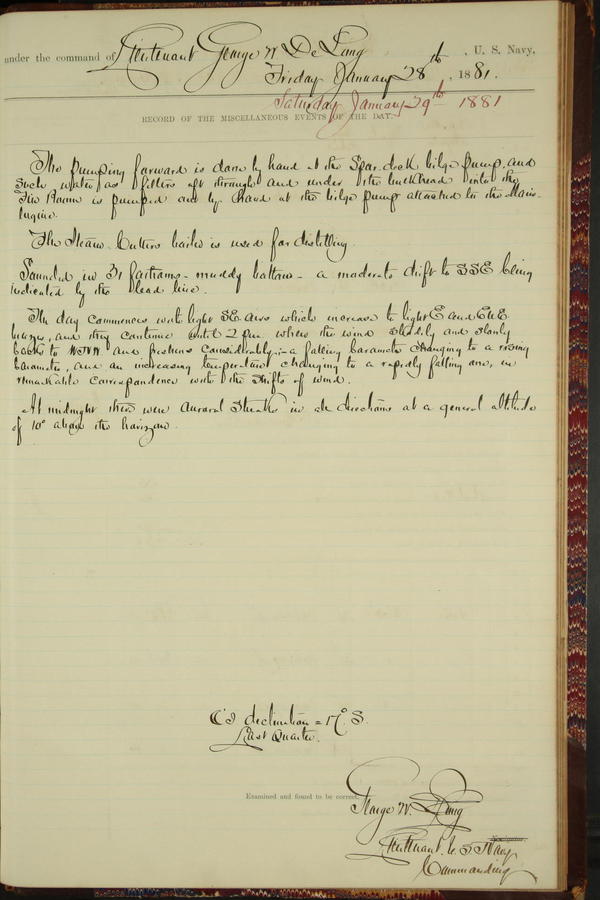 under the command of Lieutenant George W De Long, U. S. Navy,
Friday January 28th, 1881.
Saturday January 29th 1881
RECORD OF THE MISCELLANEOUS EVENTS OF THE DAY.
The Pumping forward is done by hand at the Spar-deck bilge pump, and
such water as filters aft through and under the bulkhead into the
Fire Room is pumped out by hand at the bilge pump attached to the Main-
Engine.
The Steam-Cutters boiler is used for distilling.
Sounded in 31 fathoms - muddy bottom - a moderate drift to SSE being
indicated by the lead line.
The day commences with light SE airs which increase to light E and ENE
breeze, and they continue until 2 pm when the wind steadily and slowly
backs to WNW and freshens considerably; - a falling barometer changing to a rising
barometer, and an increasing temperature changing to a rapidly falling one, in
remarkable correspondence with the shifts of wind.
At midnight there were auroral streaks in all directions at a general altitude
of 10° above the horizon.
declination = 17° S.
Last Quarter.
Examined and found to be correct.
George W. De Long
Lieutenant U. S. Navy
Commanding